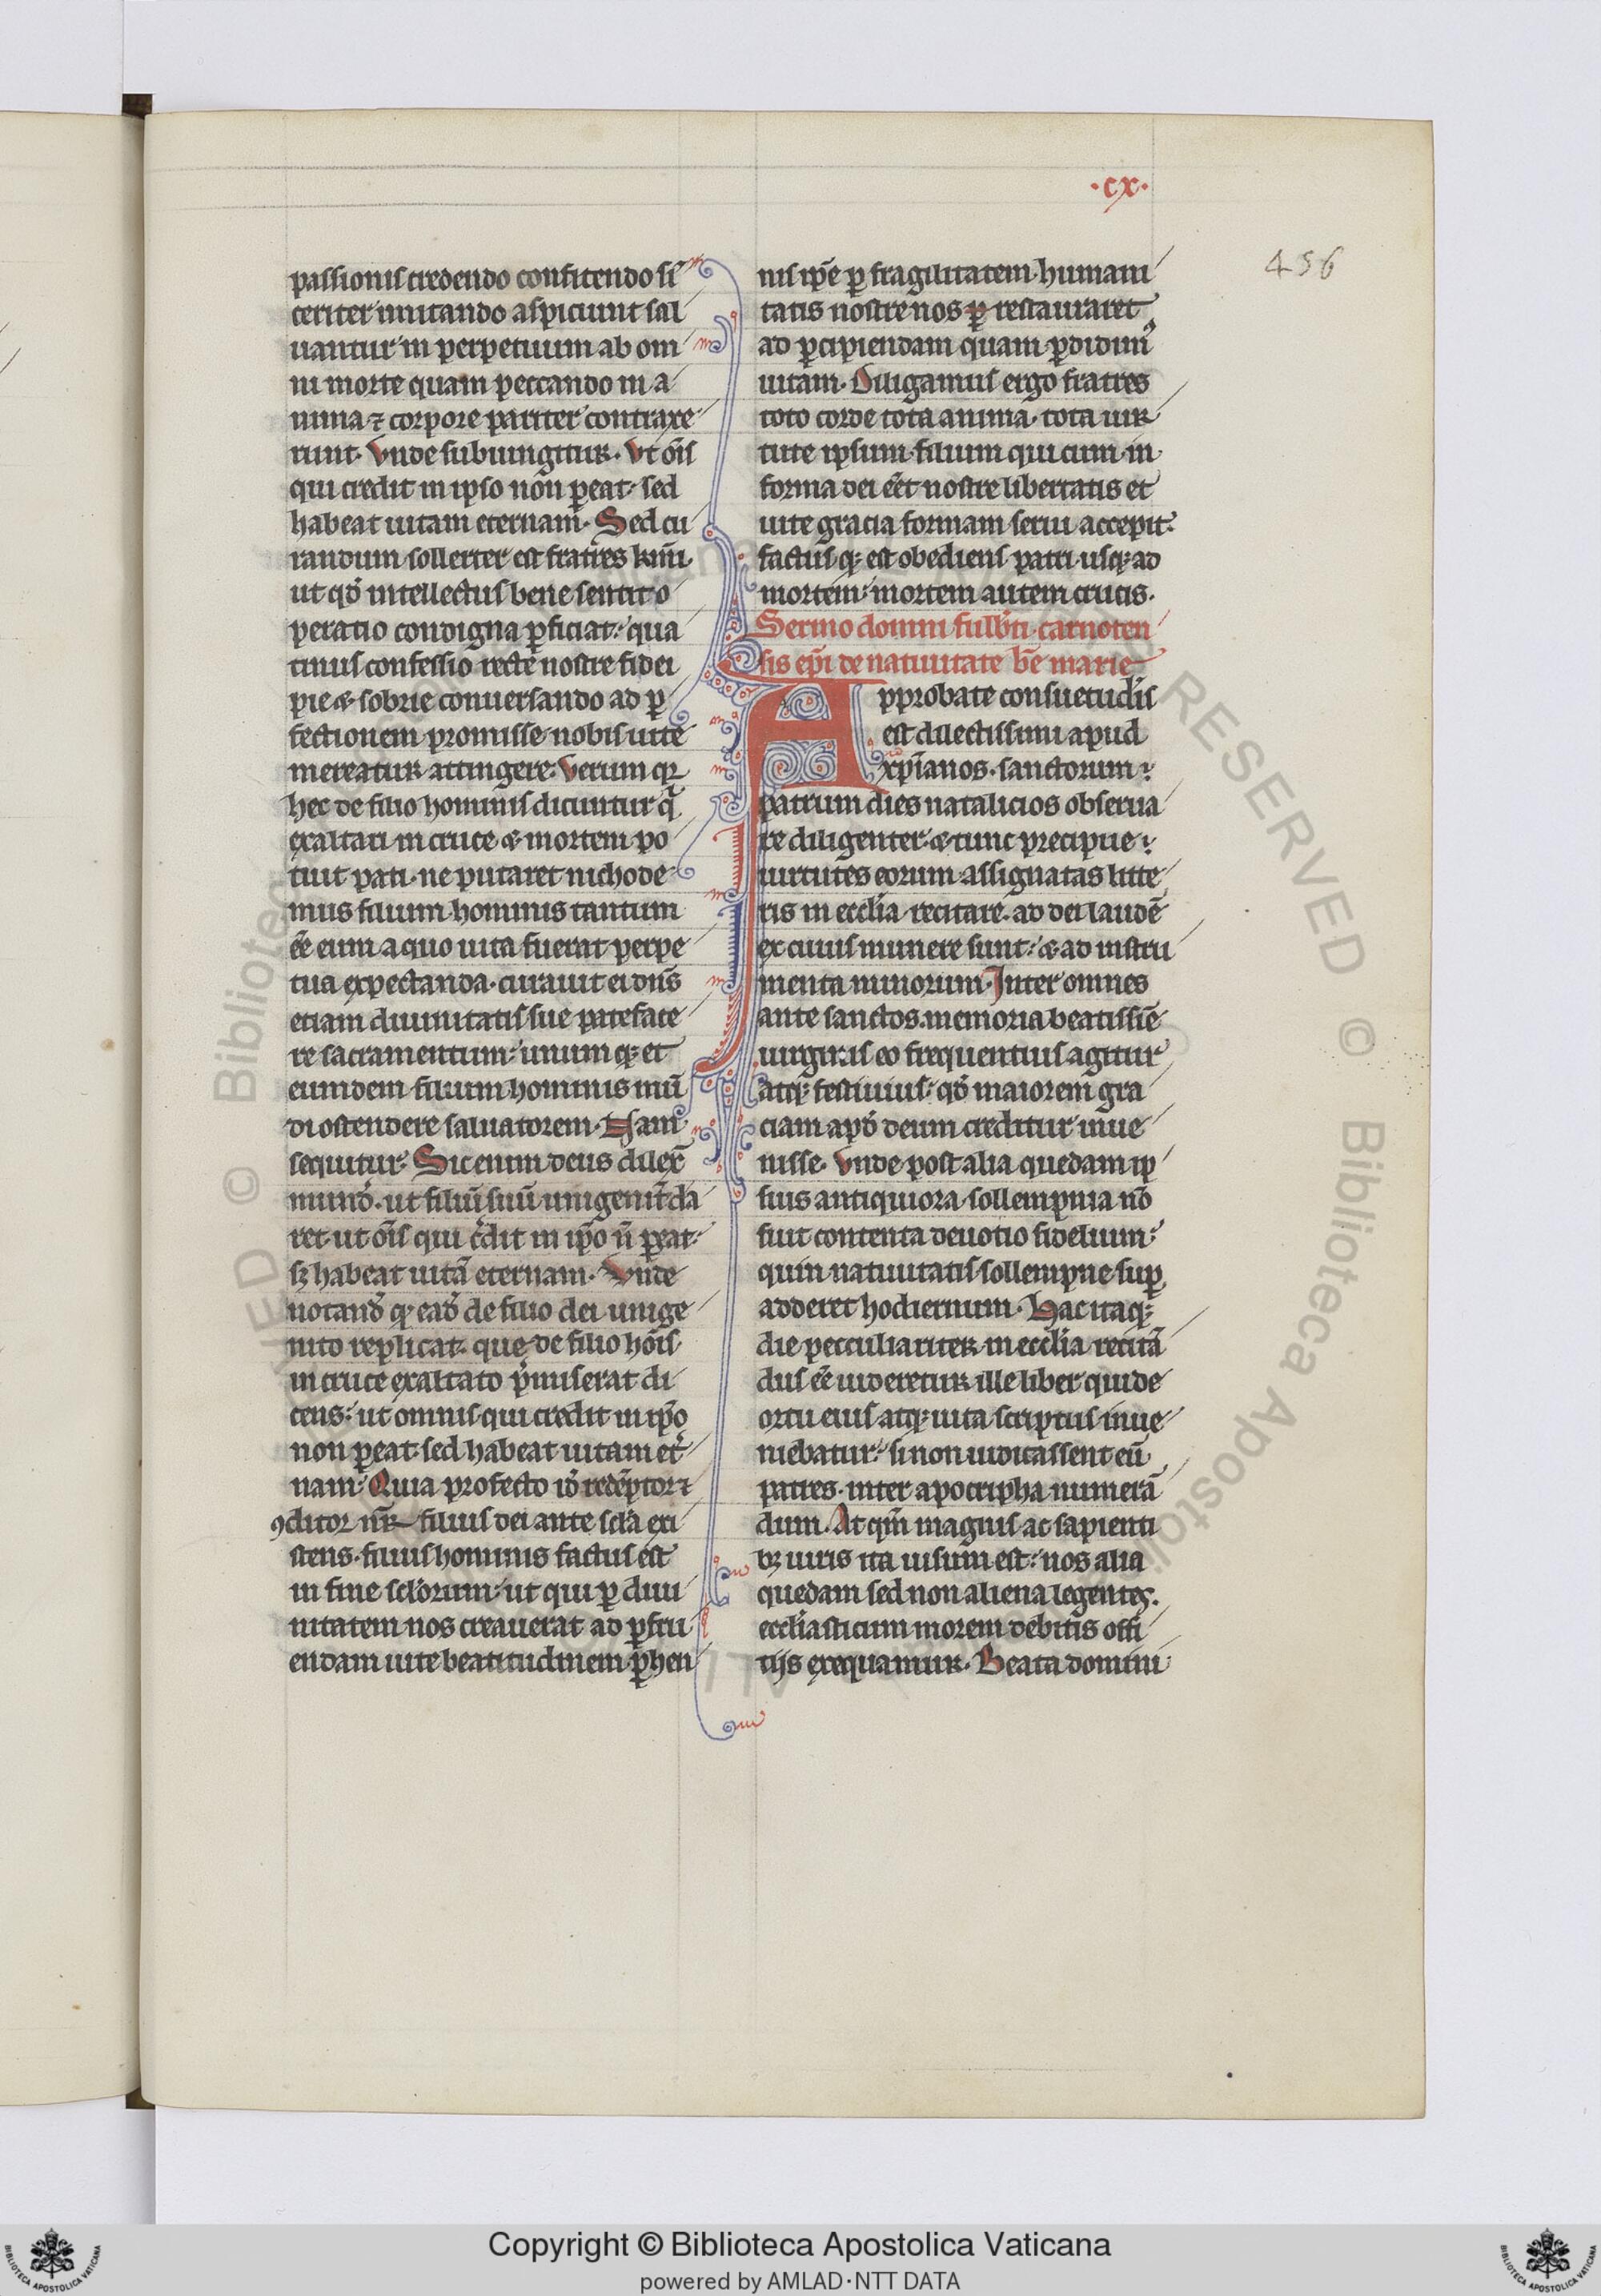 ·cx·
456
passionis credendo confitendo si
ceriter imitando aspiciunt sal
uantur in perpetuum ab om
ni morte quam peccando in a
nima ⁊ corpore pariter contraxe
runt. Vnde subiungitur. Vt oīs
qui credit in ipso non ꝑeat. sed
habeat uitam eternam. Sed cu
randum sollerter est fratres kmi.
ut qđ intellectus bene sentit o
peratio condigna ꝑficiat. qua
tinus confessio recte nostre fidei
pie & sobrie conuersando ad ꝑ
fectionem promisse nobis uite
mereatur attingere. Verum qr
hec de filio hominis dicuntur q̄
exaltari in cruce & mortem po
tuit pati. ne putaret nichode
mus filium hominis tantum
eē eum a quo uita fuerat perpe
tua expectanda. curauit ei dn̄s
etiam diuinitatis sue pateface
re sacramentum. unum qꝫ et
eumdem filium hominis mū
di ostendere saluatorem. Nam
sequitur. Sic enim deus dilex̄
mund̄. ut filiū suū unigenit̄ da
ret. ut oīs qui c̄dit in ip̄o n̄ ꝑeat.
sꝫ habeat uitā eternam. Vnde
notand̄ qꝫ ead̄ de filio dei unige
nito replicat. que de filio hoīs
in cruce exaltato p̄miserat di
cens. ut omnis qui credit in ip̄o
non ꝑeat. sed habeat uitam et̄
nam. Quia profecto id̄ redēptor ⁊
ꝯditor nr̄ filius dei ante sc̄la exi
stens. filius hominis factus est
in fine sc̄lorum. ut qui ꝑ diui
nitatem nos creauerat ad ꝑfru
endam uite beatitudinem ꝑhen
nis ip̄e ꝑ fragilitatem humani
tatis nostre nos ꝑ restauraret
ad ꝑcipiendam quam ꝑdidim᷒
uitam. Diligamus ergo fratres
toto corde tota anima. tota uir
tute ipsum filium qui cum in
forma dei eēt nostre libertatis et
uite gracia formam serui accepit.
factus qꝫ est obediens patri usqꝫ ad
mortem. mortem autem crucis.
Sermo domni fulb̄ti carnoten
sis ep̄i de natiuitate b̄e marie
Approbate consuetud̄is
est dilectissimi apud
xp̄ianos. sanctorum
patrum dies natalicios obserua
re diligenter. & tunc precipue
uirtutes eorum assignatas litte
ris in eccl̄ia recitare. ad dei laudē
ex cuius munere sunt. & ad instru
menta minorum. Inter omnes
ante sanctos. memoria beatissīe
uirginis eo frequentius agitur
atqꝫ festiuius. qđ maiorem gra
ciam apđ deum creditur inue
nisse. Vnde post alia quedam ip
sius antiquiora sollempnia nō
fuit contenta deuotio fidelium.
quin natiuitatis sollempne suꝑ
adderet hodiernum. Hac itaqꝫ
die pecculiariter in eccl̄ia recitā
dus eē uideretur ille liber qui de
ortu eius atqꝫ uita scriptus inue
niebatur. si non iudicassent eū
patres. inter apocripha numerā
dum. At qm̄ magnis ac sapienti
bꝫ uiris ita uisum est. nos alia
quedam sed non aliena legentes.
eccl̄iasticum morem debitis offi
tijs exequamur. Beata domini
Copyright © Biblioteca Apostolica Vaticana
powered by AMLAD·NTT DATA